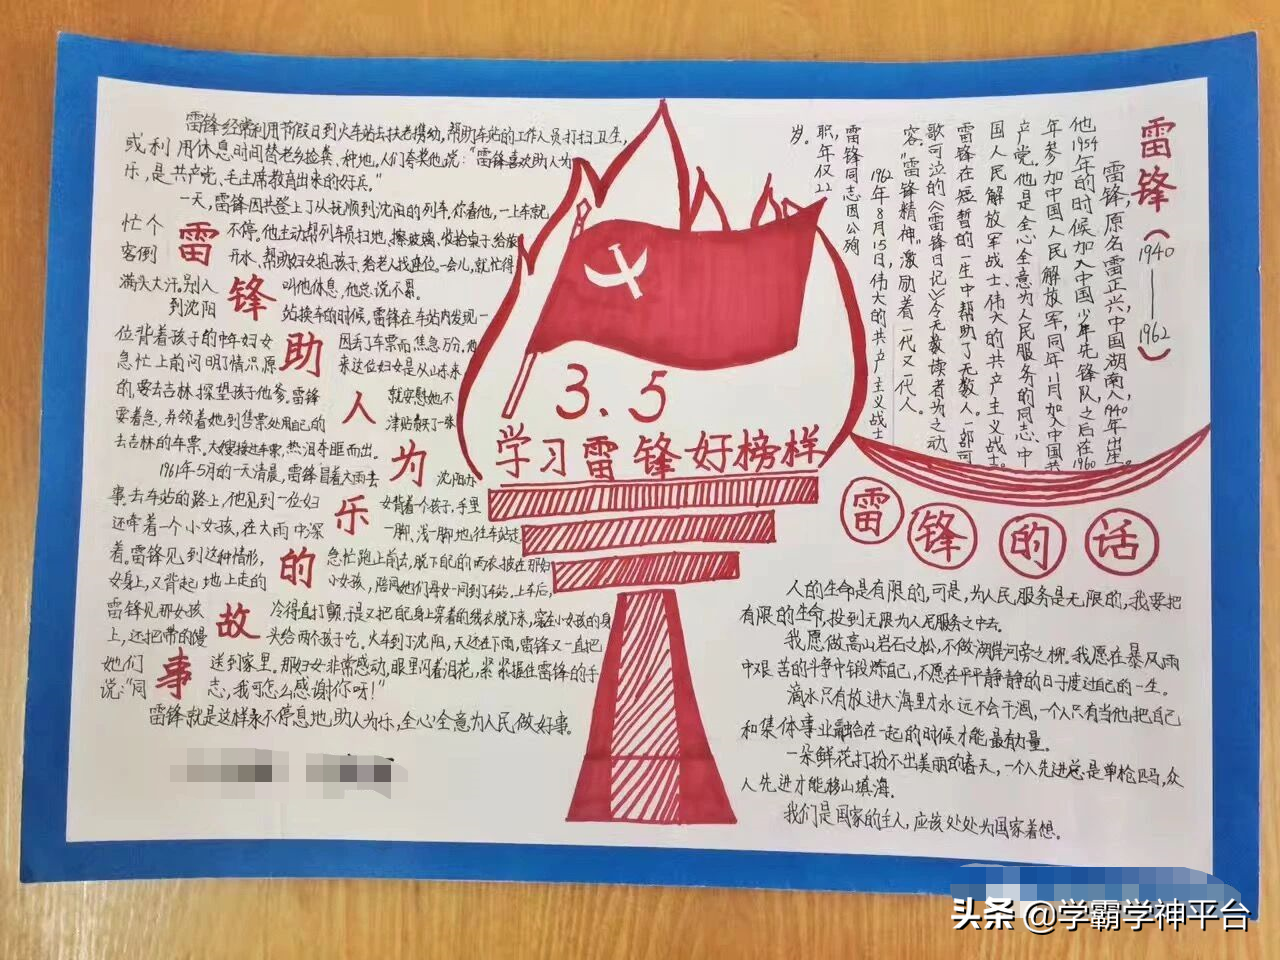 雷锋经常利用节假日到火车站去扶老携幼,帮助车站的工作人员打扫卫生,
或利用休息时间替老乡捡粪、种地,人们夸奖他说:“雷锋喜欢助人为
乐,是共产党、毛主席教育出来的好兵。”
一天,雷锋因共登上了从抚顺到沈阳的列车.你看他,一上车就
忙个
不停。他主动帮列车员扫地、擦玻璃、收拾桌子给旅
客倒
开水、帮助妇女抱孩子、给老人找座位。一会儿,就忙得
满头大汗.别人
叫他休息,他总说不累。
到沈阳
站换车的时候,雷锋在车站内发现一
位背着孩子的中年妇女
因丢了车票而焦急万分.他
急忙上前问明情况.原
来这位妇女是从山东来
的,要去吉林探望孩子他爹.雷锋
就安慰她不
要着急,并领着她到售票处用自己的
津贴买了一张
去吉林的车票。大嫂接过车票,热泪夺眶而出。
1961年5月的一天清晨,雷锋冒着大雨去
沈阳办
事.去车站的路上,他见到一位妇
女背着个孩子,手里
还牵着一个小女孩,在大雨中深
一脚、浅一脚地往车站走
着。雷锋见到这种情形,
急忙跑上前去,脱下自己的雨衣,披在那妇
女身上,又背起地上走的
小女孩,陪同她们母女一同到了车站.上车后,
雷锋见那女孩
冷得直打颤,于是又把自己身上穿着的线衣脱下来,穿在小女孩的身
上,还把带的馒
头给两个孩子吃。火车到了沈阳,天还在下雨,雷锋又一直把
她们
送到家里。那妇女非常感动,眼里闪着泪花,紧紧握住雷锋的手
说:“同
志,我可怎么感谢你呀!”
雷锋就是这样永不停息地,助人为乐,全心全意为人民做好事。
雷锋助人为乐的故事
3.5
学习雷锋好榜样
雷锋(1940——1962)
雷锋,原名雷正兴,中国湖南人,1940年出生。
他1954年的时候加入中国少年先锋队,之后在1960
年参加中国人民解放军,同年11月加入中国共
产党。他是全心全意为人民服务的同志、中
国人民解放军战士、伟大的共产主义战士。
雷锋在短暂的一生中帮助了无数人。一部可
歌可泣的《雷锋日记》令无数读者为之动
容。“雷锋精神”激励着一代又一代人。
1962年8月15日,伟大的共产主义战士
雷锋同志因公殉
职,年仅22
岁。
雷锋的话
人的生命是有限的,可是,为人民服务是无限的,我要把
有限的生命,投到无限为人民服务之中去。
我愿做高山岩石之松,不做湖岸河旁之柳。我愿在暴风雨
中艰苦的斗争中锻炼自己,不愿在平平静静的日子度过自己的一生。
滴水只有放进大海里才永远不会干涸,一个人只有当他把自己
和集体事业融合在一起的时候才能最有力量。
一朵鲜花打扮不出美丽的春天,一个人先进总是单枪匹马,众
人先进才能移山填海。
我们是国家的主人,应该处处为国家着想。
头条 @学霸学神平台